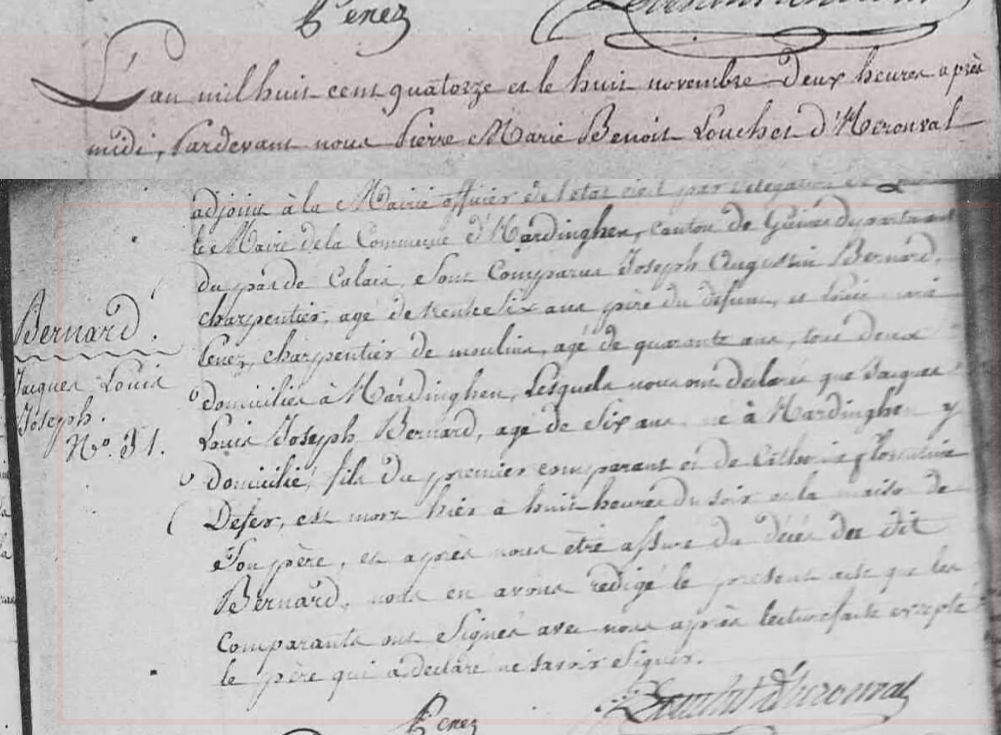 Penez
L'an mil huit cent quatorze et le huit novembre deux heures après
midi, Pardevant nous Pierre Marie Benoit Louchet d'Heronval
adjoint à la Mairie officier de l'état civil par délégation de
le Maire de la Commune d'Hardinghen, canton de Guines département
du pas de Calais, sont Comparus Joseph Augustin Bernard,
charpentier, agé de trente six ans père du défunt, et Louis marie
Penez, charpentier de moulins, agé de quarante ans, tous deux
domiciliés à Hardinghen, Lesquels nous ont déclarés que Jacques
Louis Joseph Bernard, agé de Six ans né à Hardinghen y
domicilié, fils du premier comparant et de
Defer, est mort hier à huit heures du soir en la maison de
Son père, et après nous être assuré du décès du dit
Bernard, nous en avons rédigé le present acte que les
Comparants ont Signés avec nous après lecture faite excepté
le père qui a déclaré ne savoir signer.
Bernard.
Jacques Louis
Joseph.
N.º 31.
Penez
Louchet d'heronval